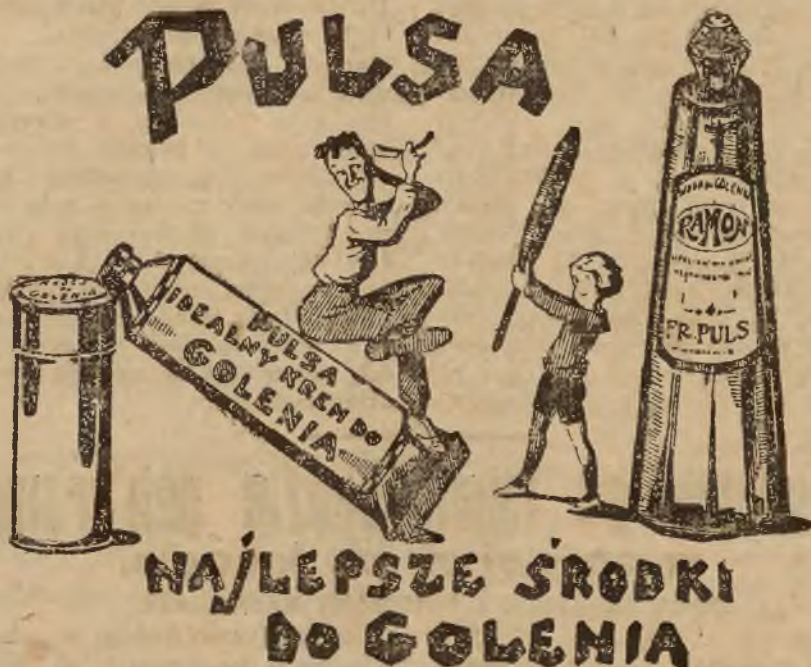 PULSA
GOLENIA
PULSA
IDEALNY KREM DO
GOLENIA
RAMON
FR. PULS
NAJLEPSZE ŚRODKI
DO GOLENIA